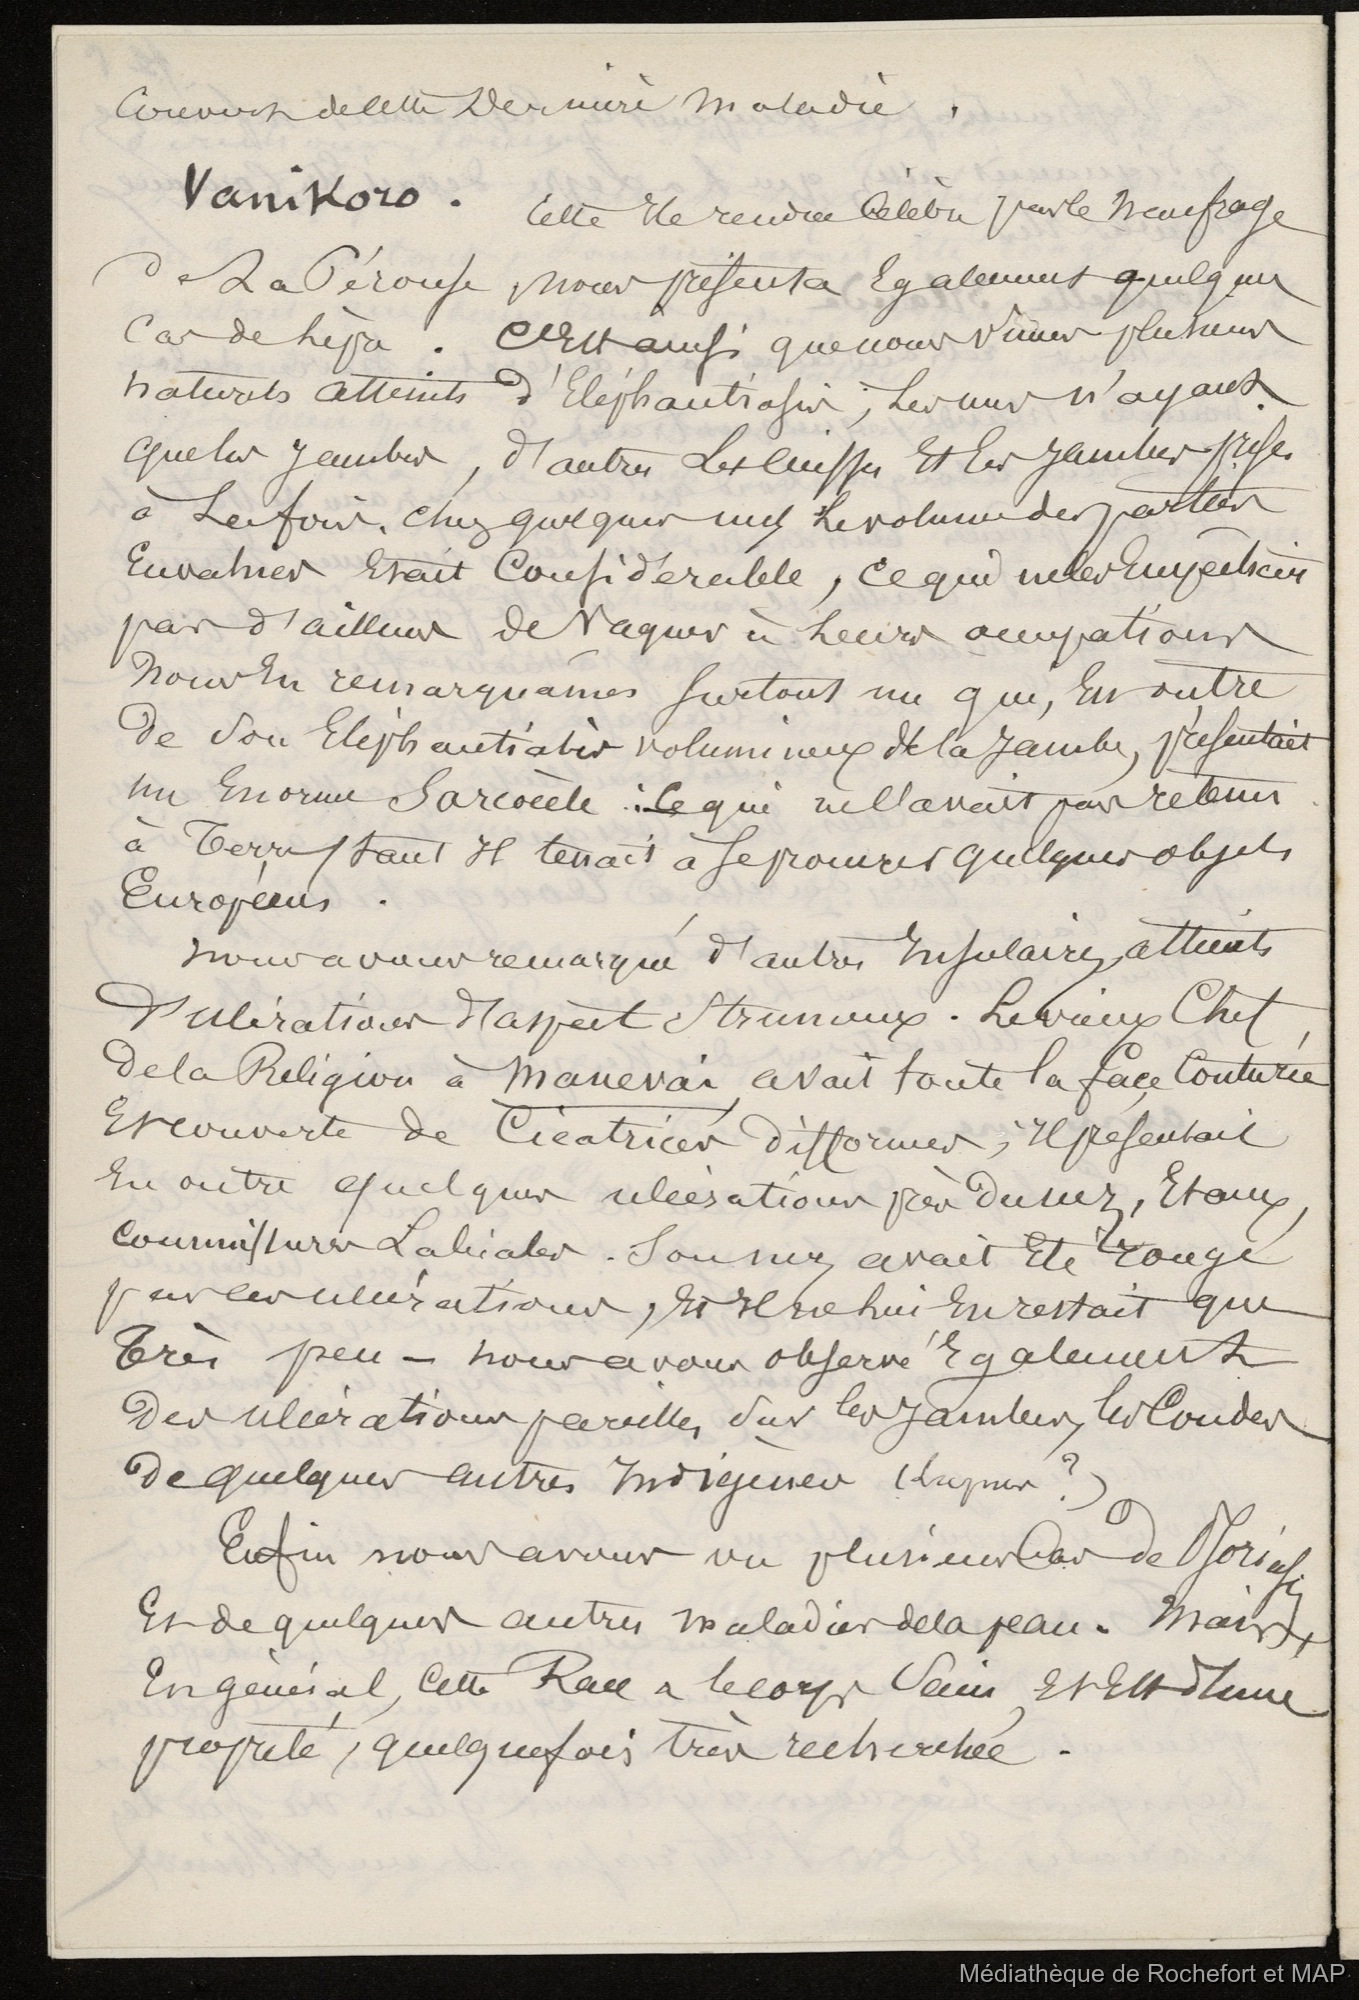 couverts de cette Dernière maladie.
Vanikoro. Cette Ile rendue Célèbre par le Naufrage
De La Pérouse, nous présenta Egalement quelques
Cas de lèpre. C'Est ainsi que nous vîmes plusieurs
naturels atteints d'Eléphantiasis, Les uns n'ayant
que les Jambes, d'autres Les cuisses Et les Jambes prises
à La fois. chez quelques uns Le volume des parties
Envahies Etait Considérable, ce qui ne les Empêchait
pas d'ailleurs de Vaquer à Leurs occupations
Nous En remarquâmes surtout un qui, En outre
De son Eléphantiasis volumineux de la Jambe, présentait
un Enorme Sarcocèle : Ce qui ne l'avait pas retenu
à Terre, tant Il tenait à se procurer quelques objets
Européens.
Nous avons remarqué d'autres Insulaires, atteints
D'ulcérations d'aspect Strumeux. Le vieux Chef,
De la Religion à Manevai avait toute la face Couturée
Et couverte de Cicatrices difformes; Il présentait
En outre quelques ulcérations près Du nez, Et aux
Commissures Labiales. Son nez avait Eté rongé
par les ulcérations, Et Il ne lui En restait que
Très peu - Nous avons observé Egalement
Des ulcérations pareilles sur les Jambes, les Coudes
De quelques autres Indigènes (Lupus ?)
Enfin nous avons vu plusieurs Cas de Psoriasis
Et de quelques autres maladies de la peau. Mais
En général, Cette Race a le corps Sain, Et Est d'une
propreté, quelquefois très recherchée.
Médiathèque de Rochefort et MAP